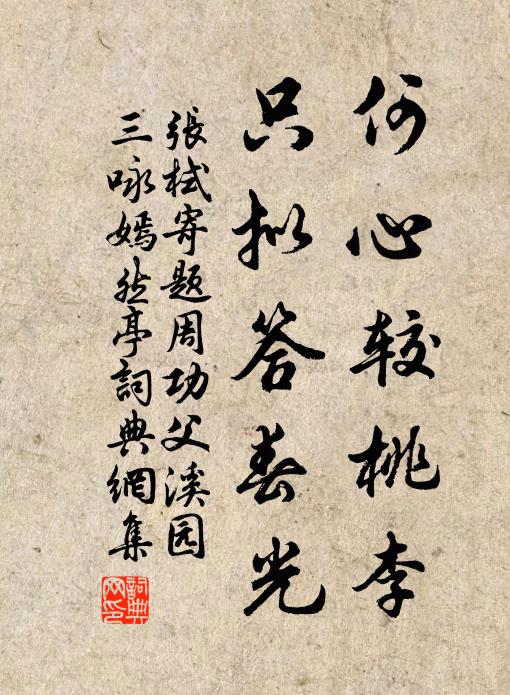 何心较桃李
只拟答春光
張栻寄题周功父溪园
三咏嫣然亭詞典網集
詞典網印